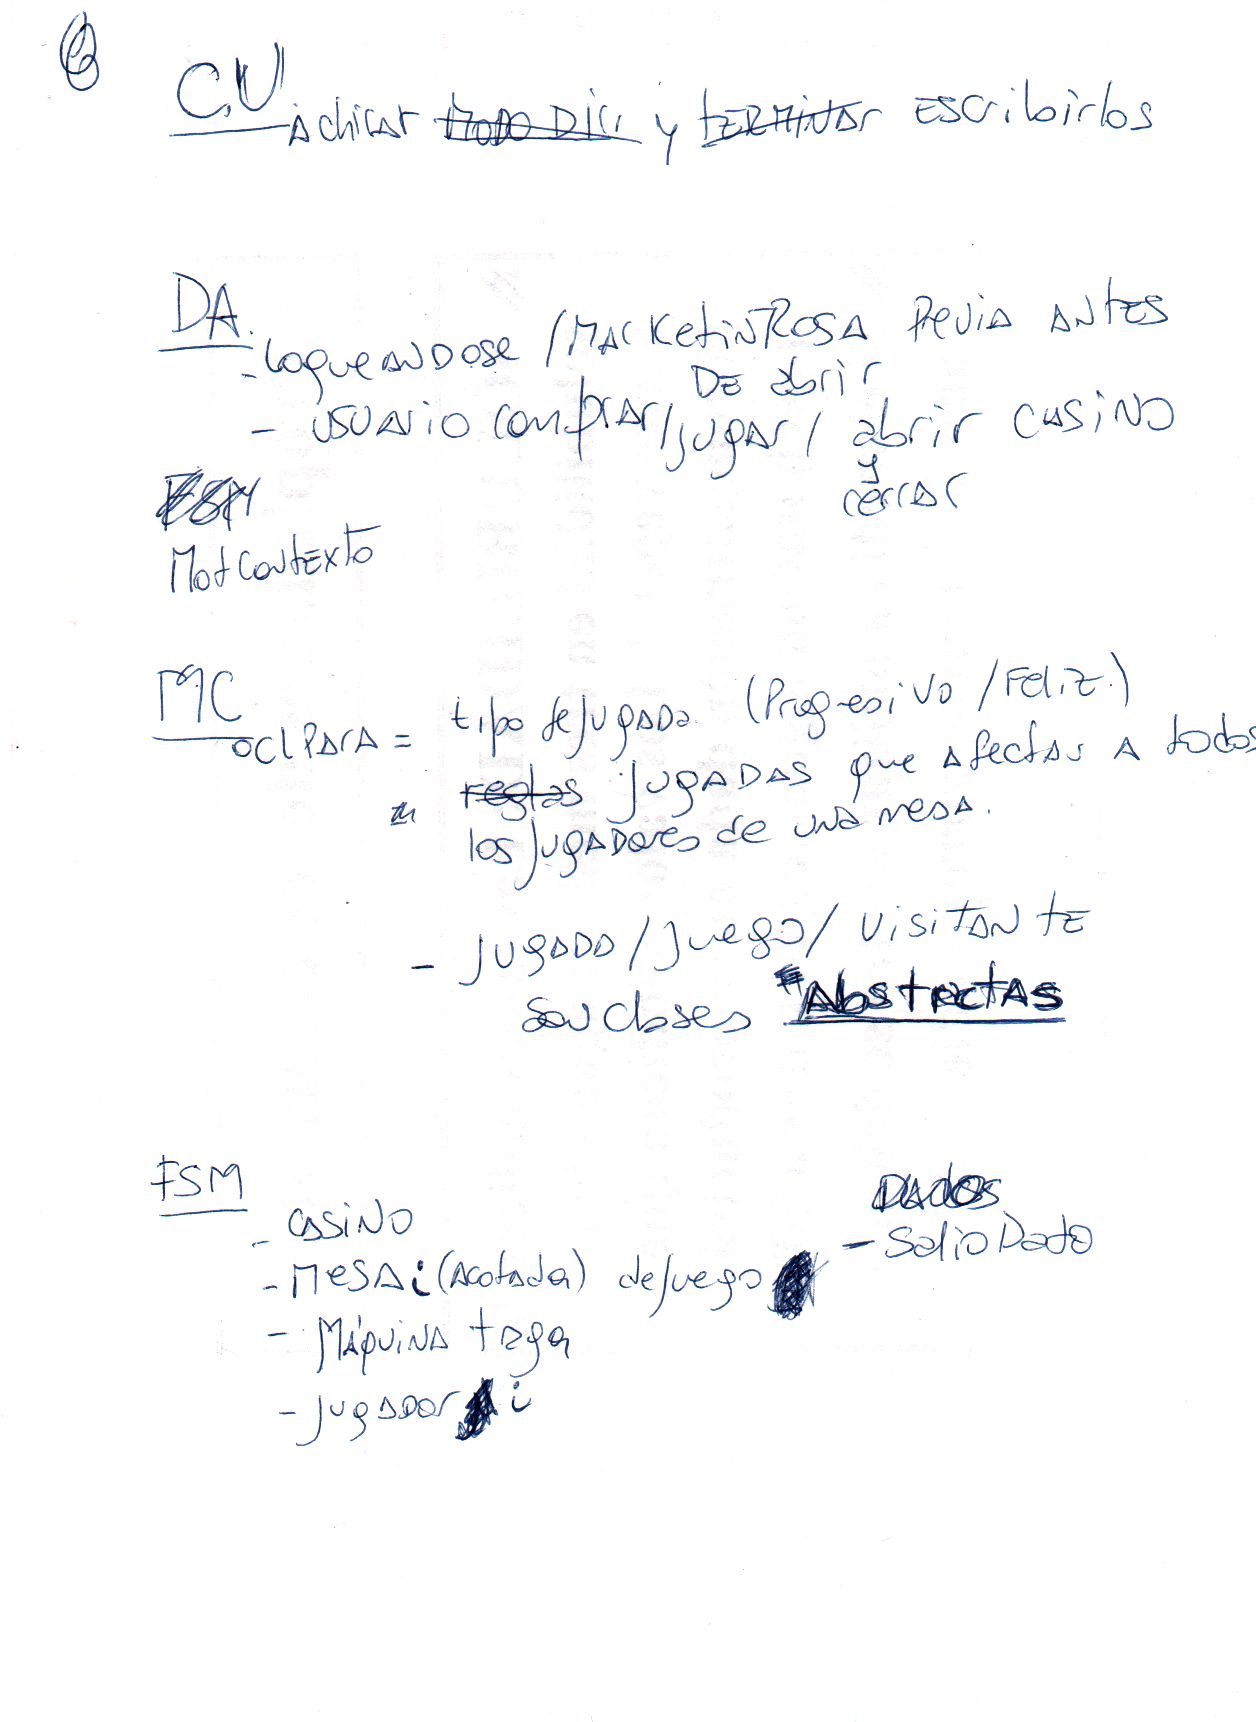 C.U
Achicar y terminar escribirlos
DA.
- logueandose / MarketinRosa Previa antes
de abrir
- usuario comprar / jugar / abrir casino
y
cerrar
FSM
Mot contexto
MC
OCL PARA = tipo de jugada (Progresivo / Feliz.)
reglas jugadas que afectas a todos
los jugadores de una mesa.
- jugada / juego / visitante
son clases Abstractas
FSM
- casino
- Mesa i (Acotada) de juego
- Máquina traga
- jugador i
Dados
- Salio Dado